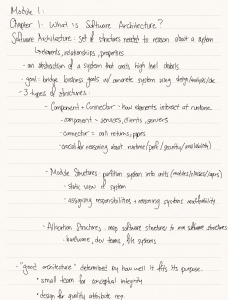 Module 1:
Chapter 1: What is Software Architecture?
Software Architecture: set of structures needed to reason about a system
↳ elements, relationships, properties
- an abstraction of a system that omits high level details
- goal: bridge business goals w/ concrete system using design/analysis/doc
- 3 types of structures:
- Component + Connector - how elements interact at runtime
- component = services, clients, servers
- connector = call returns, pipes
- crucial for reasoning about runtime (perf / security / availability)
- Module Structures partition system into units (modules/classes/layers)
- static view of system
- assigning responsibilities + reasoning systems modifiability
- Allocation Structures: map software structures to non software structures
- hardware, dev teams, file systems
- "good architecture" determined by how well it fits its purpose.
• small team for conceptual integrity
• design for quality attribute req.